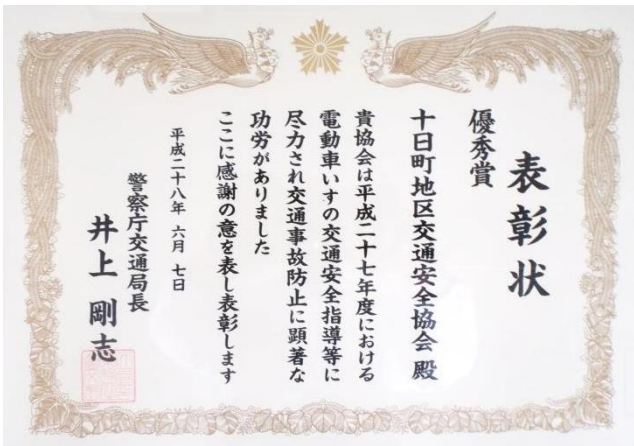 表彰状
優秀賞
十日町地区交通安全協会 殿
貴協会は平成二十七年度における
電動車いすの交通安全指導等に
尽力され交通事故防止に顕著な
功労がありました
ここに感謝の意を表し表彰します
平成二十八年 六月 七日
警察庁交通局長
井上 剛志